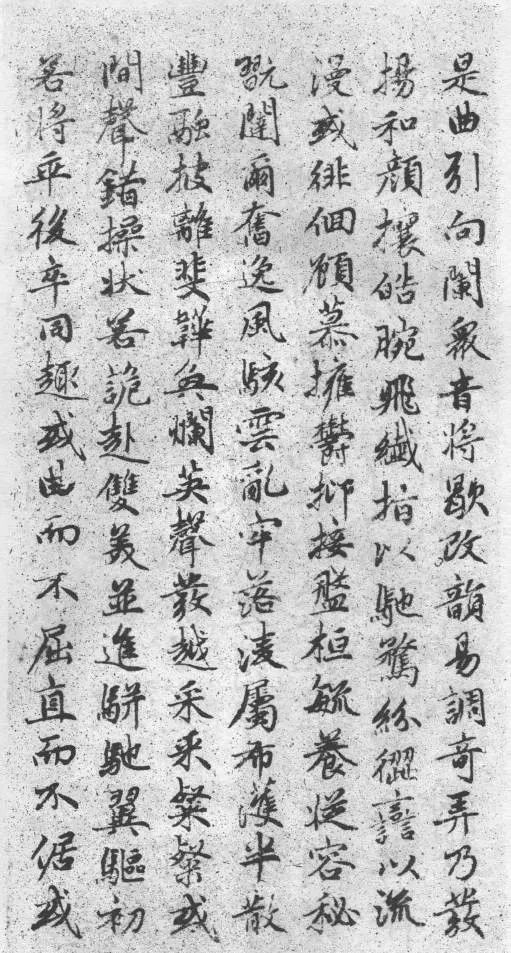 是曲引向闌衆音將歇改韻易調奇弄乃發
揚和顏攘皓腕飛纖指以馳騖紛譶以流
漫或徘徊顧慕擁鬱抑按盤桓毓養從容秘
翫闥爾奮逸風駭雲亂牢落凌厲布濩半散
豐融披離斐韡奐爛英聲發越采采粲粲或
間聲錯操狀若詭赴雙美並進駢馳翼驅初
若將乖後卒同趣或曲而不屈直而不倨或